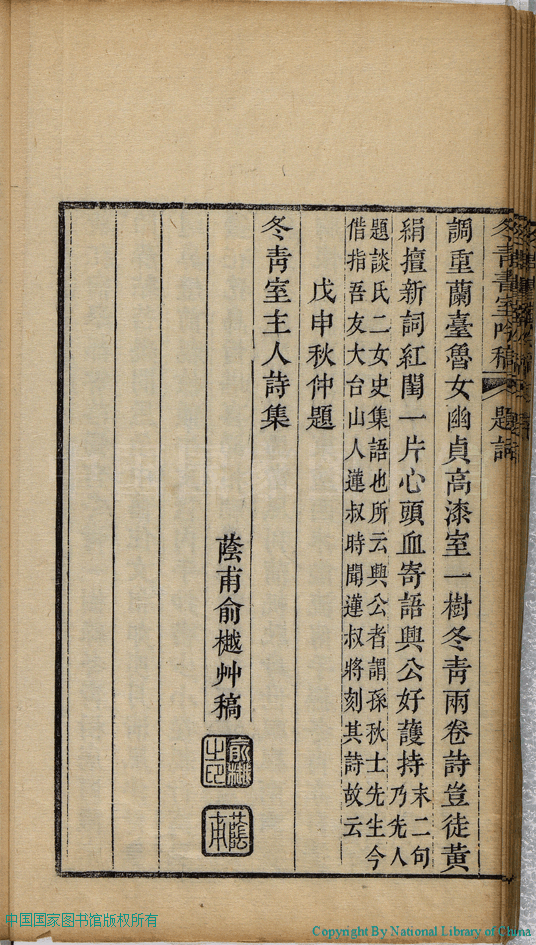 冬青書室吟稿 題詞
調重蘭臺魯女幽貞高漆室一樹冬青兩卷詩豈徒黄
絹擅新詞紅閨一片心頭血寄語興公好護持末二句乃先人
題談氏二女史集語也所云興公者謂孫秋士先生今
借指吾友大台山人蓮叔時聞蓮叔將刻其詩故云
戊申秋仲題
冬青室主人詩集
蔭甫俞樾艸稿
俞樾之印
蔭甫
中国国家图书馆版权所有
Copyright By National Library of China